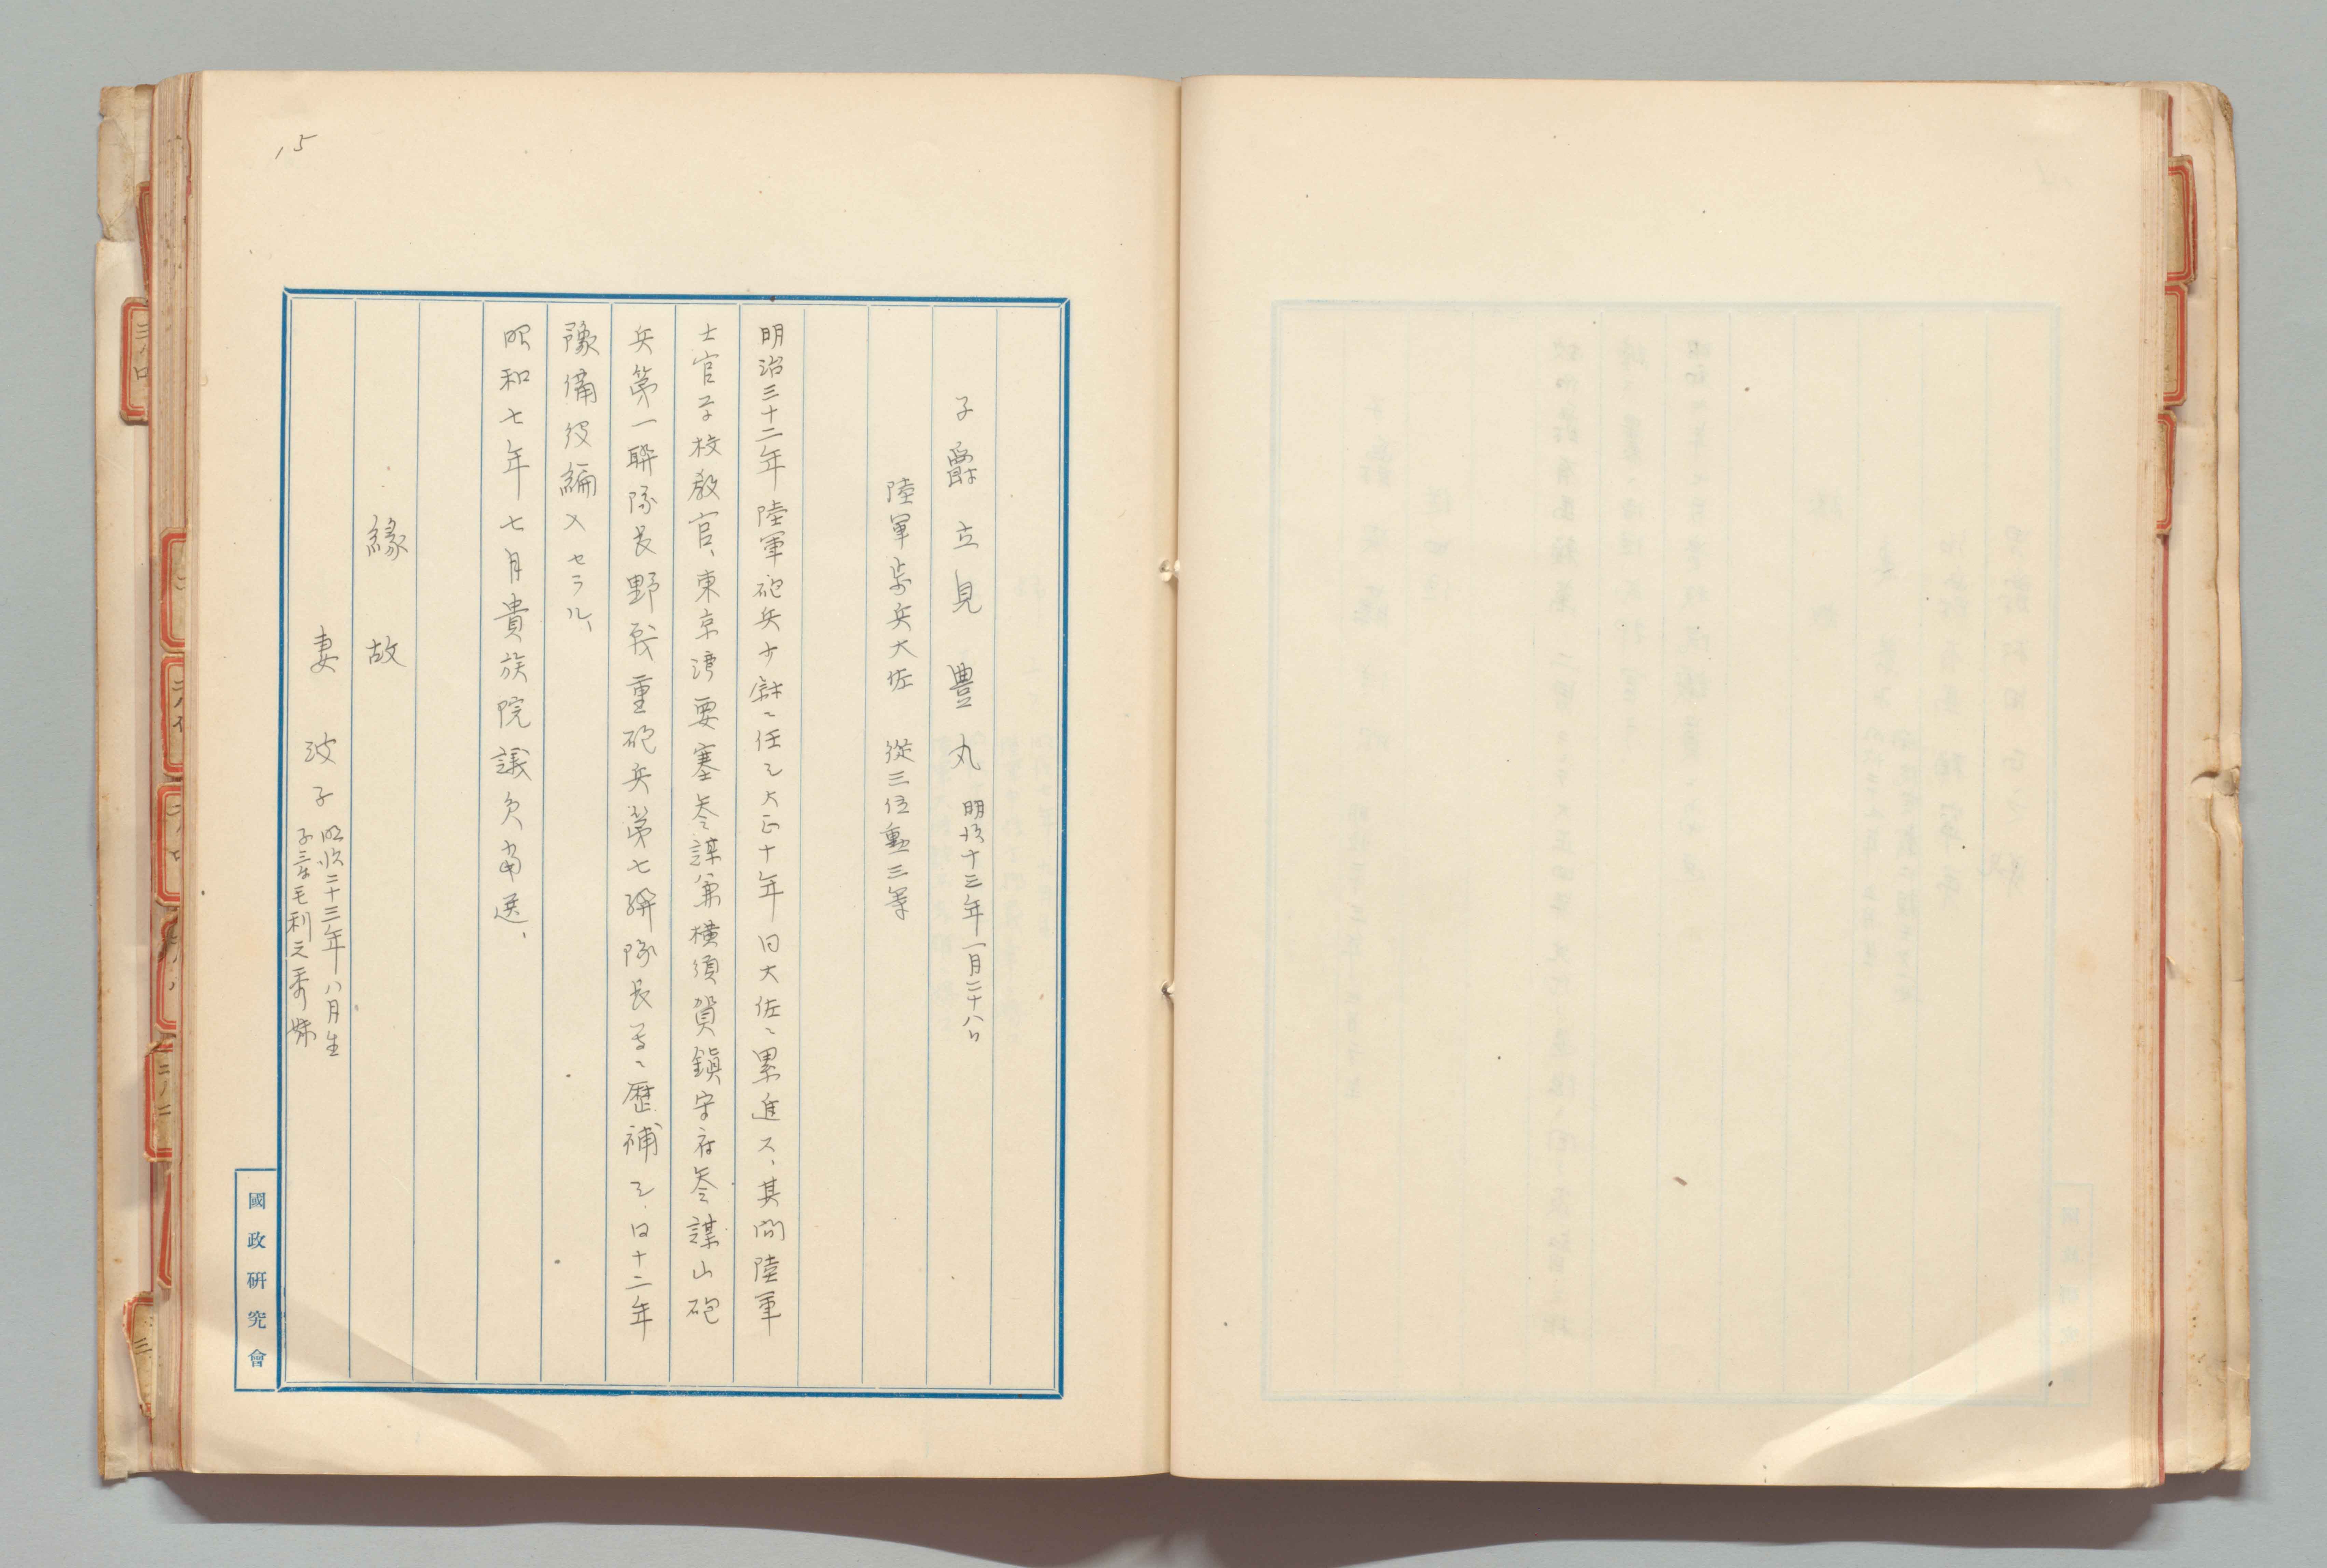 15
子爵 立見豊丸 明治十三年一月二十八日
陸軍歩兵大佐 從三位勳三等
明治三十二年陸軍砲兵少尉ニ任シ大正十年同大佐ニ累進ス、其間陸軍
士官学校教官、東京湾要塞参謀兼横須賀鎮守府参謀山砲
兵第一聯隊長野戦重砲兵第七聯隊長等ニ歴補シ、同十二年
豫備役編入セラル、
昭和七年七月貴族院議員当選、
縁故
妻 波子 明治二十三年八月生
子爵毛利元秀妹
國政研究會